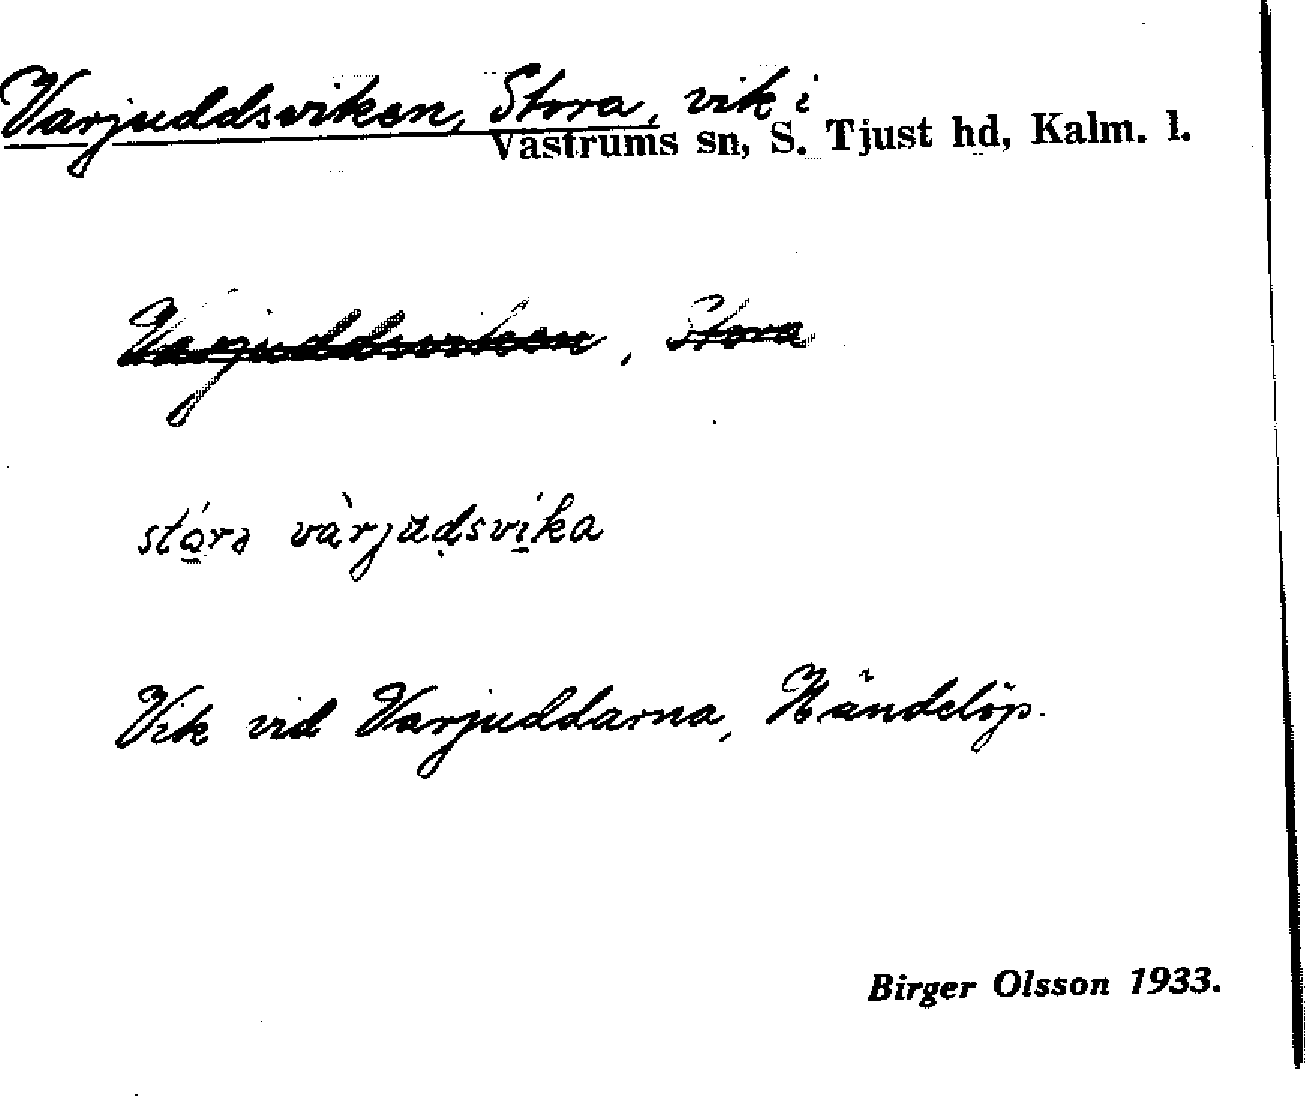 Varjuddsviken, Stora, vik i
Västrums sn, S. Tjust hd, Kalm. l.
Varjuddsviken, Stora
stóra vàrjudsvíka
Vik vid Varjuddarna, Händelöp.
Birger Olsson 1933.